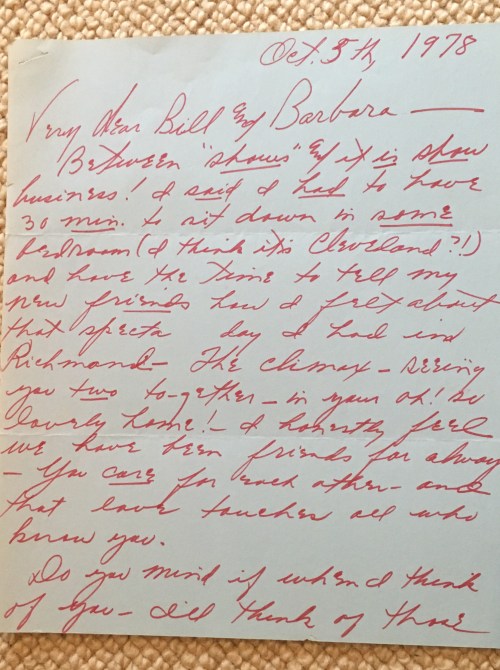 Oct. 5th, 1978
Very dear Bill and Barbara —
Between "shows" and it is show
business! I said I had to have
30 min. to sit down in some
bedroom (I think its Cleveland?!)
and have the time to tell my
new friends how I felt about
that specta day I had in
Richmond - The climax - seeing
you two to-gether - in your oh! so
lovely home! - I honestly feel
we have been friends for always
- You care for each other - and
that love touches all who
know you.
Do you mind if when I think
of you - I'll think of those